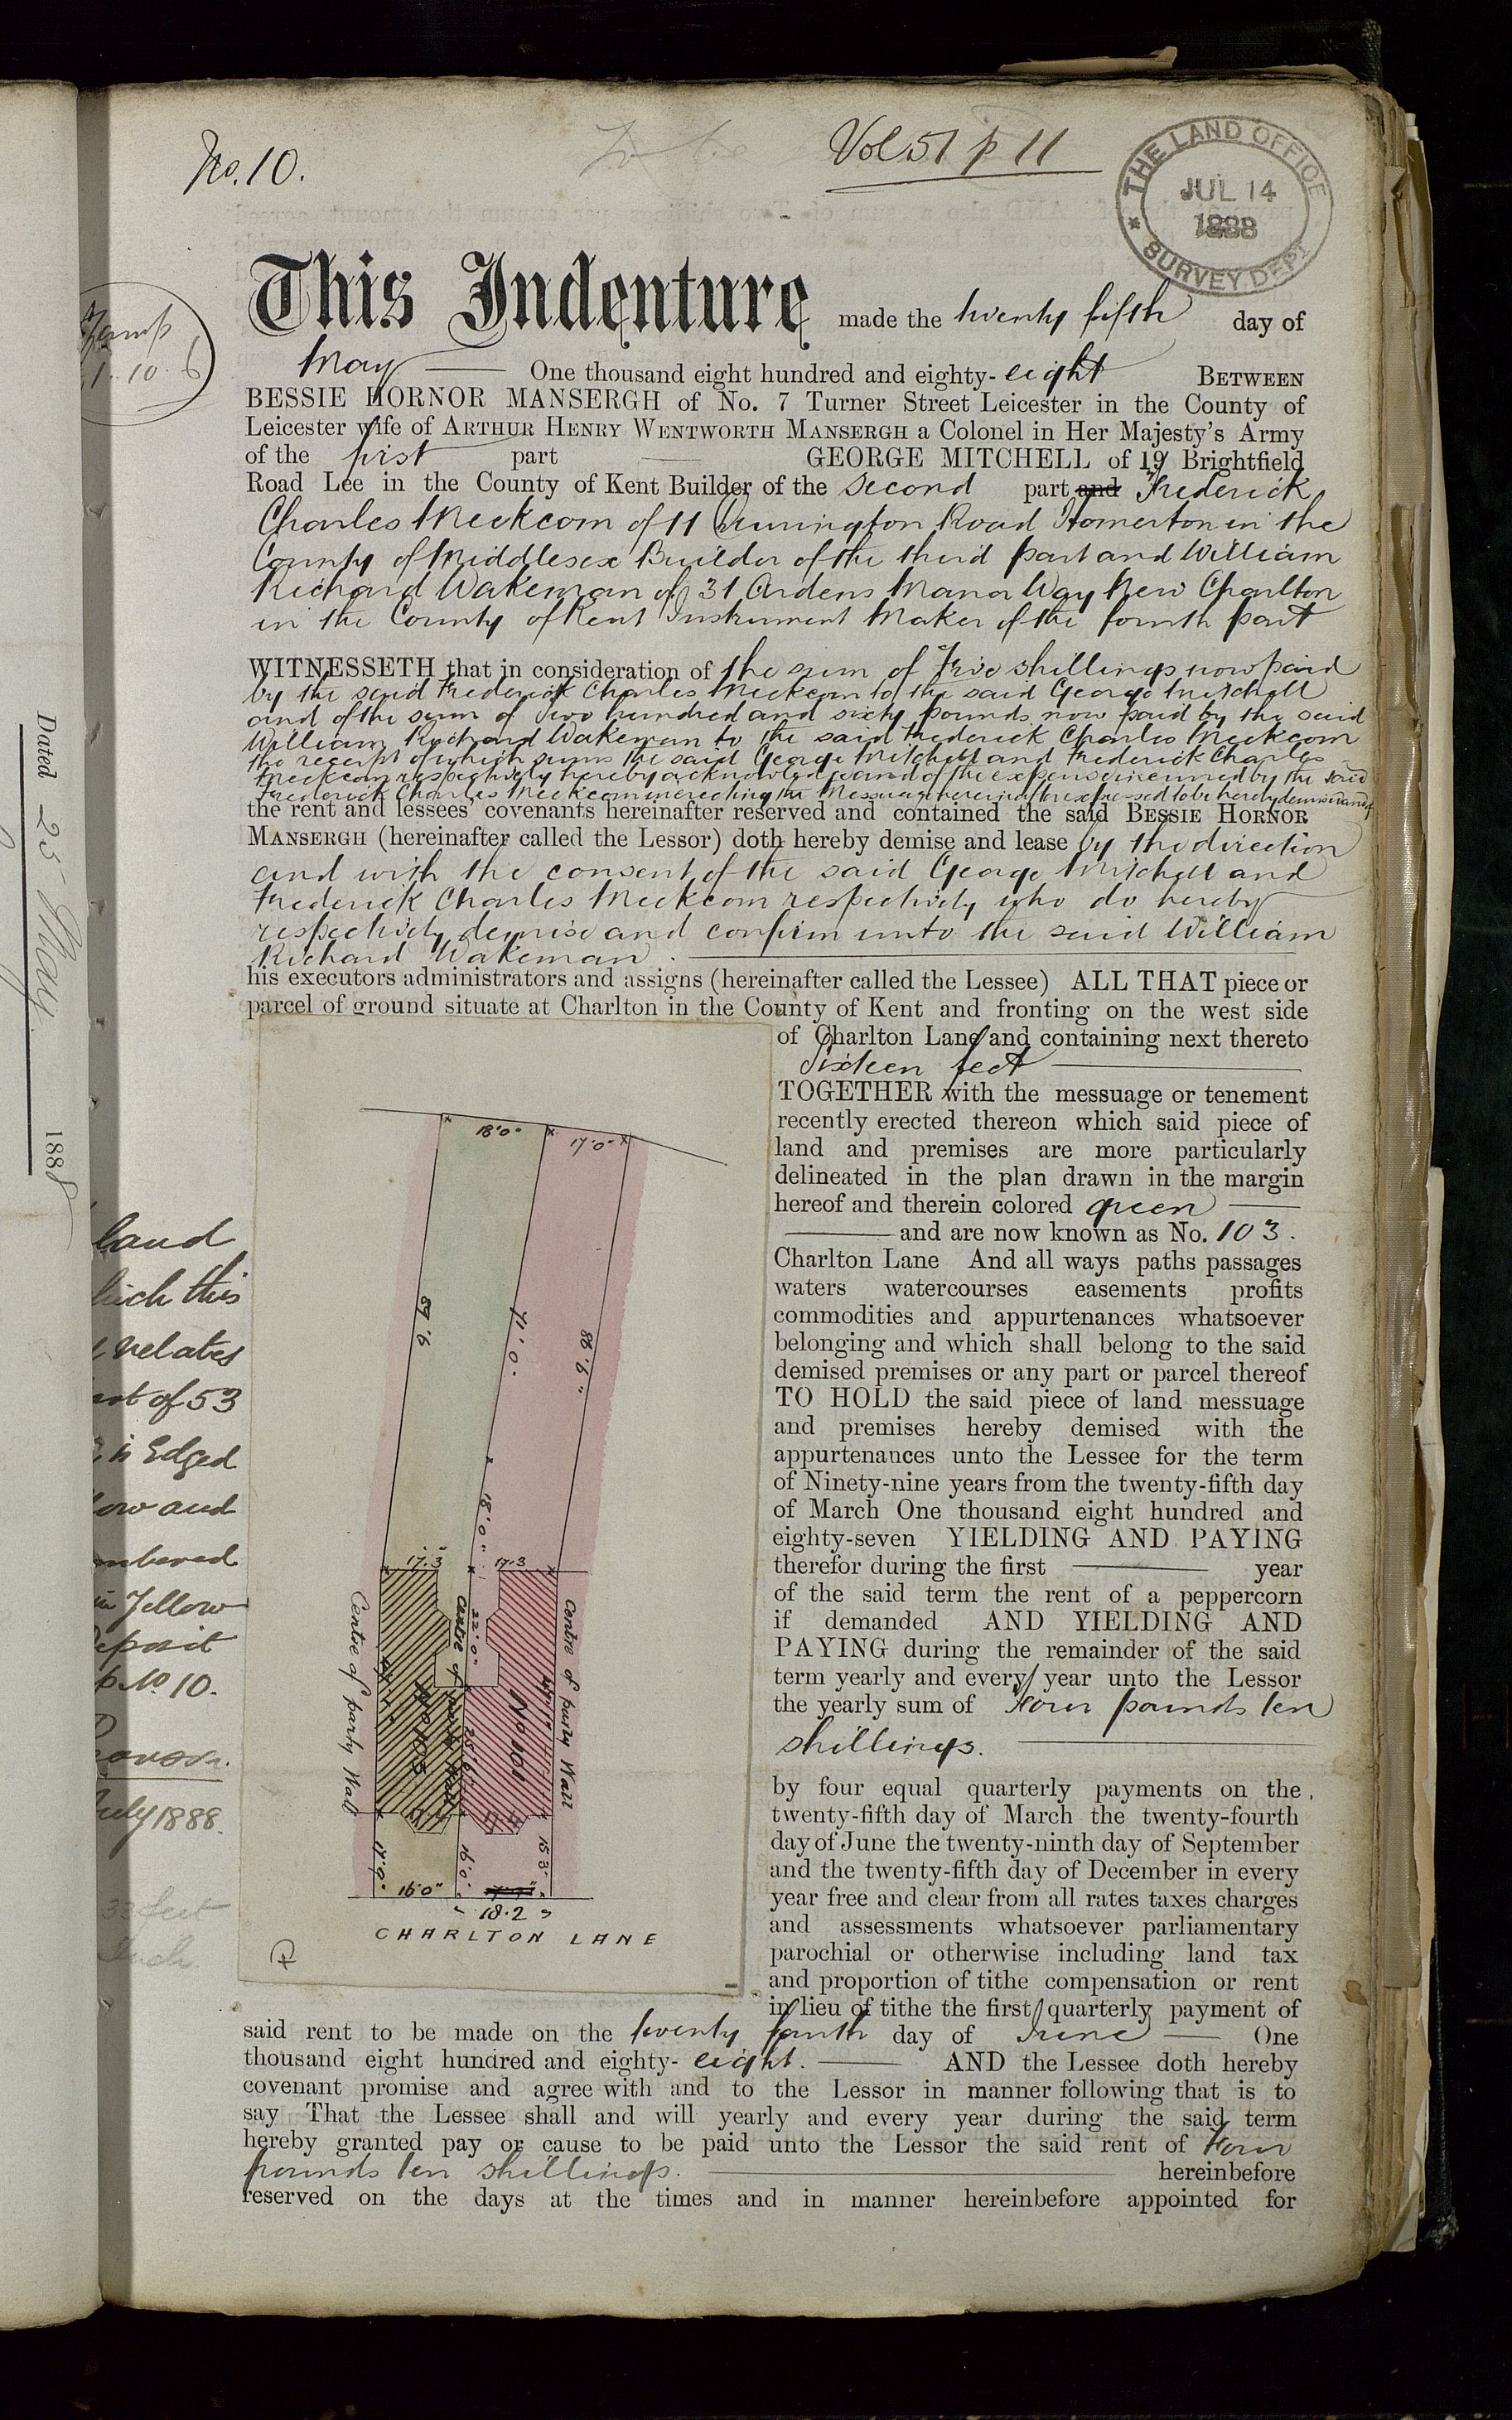 No. 10.
Vol 51 p 11
THE LAND OFFICE
JUL 14
1888
* SURVEY DEPT
This Indenture made the twenty fifth day of
May One thousand eight hundred and eighty-eight BETWEEN
BESSIE HORNOR MANSERGH of No. 7 Turner Street Leicester in the County of
Leicester wife of ARTHUR HENRY WENTWORTH MANSERGH a Colonel in Her Majesty's Army
of the first part GEORGE MITCHELL of 19 Brightfield
Road Lee in the County of Kent Builder of the second part and Frederick
Charles Meekcom of 11 Road Homerton in the
County of Middlesex Builder of the third part and William
Richard Wakeman of 31 Ardens Manor Way New Charlton
in the County of Kent Instrument Maker of the fourth part
WITNESSETH that in consideration of the sum of Five shillings now paid
by the said Frederick Charles Meekcom to the said George Mitchell
and of the sum of Two hundred and sixty pounds now paid by the said
William Richard Wakeman to the said Frederick Charles Meekcom
the receipt of which sums the said George Mitchell and Frederick Charles
Meekcom respectively hereby acknowledge and of the expense incurred by the said
Frederick Charles Meekcom in erecting the Messuage hereinafter expressed to be hereby demised and of
the rent and lessees' covenants hereinafter reserved and contained the said BESSIE HORNOR
MANSERGH (hereinafter called the Lessor) doth hereby demise and lease by the direction
and with the consent of the said George Mitchell and
Frederick Charles Meekcom respectively who do hereby
respectively demise and confirm unto the said William
Richard Wakeman.
his executors administrators and assigns (hereinafter called the Lessee) ALL THAT piece or
parcel of ground situate at Charlton in the County of Kent and fronting on the west side
of Charlton Lane and containing next thereto
Sixteen feet
TOGETHER with the messuage or tenement
recently erected thereon which said piece of
land and premises are more particularly
delineated in the plan drawn in the margin
hereof and therein colored green
and are now known as No. 103.
Charlton Lane And all ways paths passages
waters watercourses easements profits
commodities and appurtenances whatsoever
belonging and which shall belong to the said
demised premises or any part or parcel thereof
TO HOLD the said piece of land messuage
and premises hereby demised with the
appurtenances unto the Lessee for the term
of Ninety-nine years from the twenty-fifth day
of March One thousand eight hundred and
eighty-seven YIELDING AND PAYING
therefor during the first year
of the said term the rent of a peppercorn
if demanded AND YIELDING AND
PAYING during the remainder of the said
term yearly and every year unto the Lessor
the yearly sum of Four pounds ten
shillings.
by four equal quarterly payments on the
twenty-fifth day of March the twenty-fourth
day of June the twenty-ninth day of September
and the twenty-fifth day of December in every
year free and clear from all rates taxes charges
and assessments whatsoever parliamentary
parochial or otherwise including land tax
and proportion of tithe compensation or rent
in lieu of tithe the first quarterly payment of
said rent to be made on the twenty fourth day of June One
thousand eight hundred and eighty-eight. AND the Lessee doth hereby
covenant promise and agree with and to the Lessor in manner following that is to
say That the Lessee shall and will yearly and every year during the said term
hereby granted pay or cause to be paid unto the Lessor the said rent of Four
pounds ten shillings. hereinbefore
reserved on the days at the times and in manner hereinbefore appointed for
18'0"
17'0"
89'.6
71'.0"
88'.6"
18'.0"
17.3
17.3
22'.0"
Centre of party Wall
Centre of party Wall
Centre of party Wall
No 103
No 101
17'.0"
16'.0"
16'.3"
16'0"
18.2
CHARLTON LANE
Stamp
Dated 25 May 1888
land
which this
relates
of 53
is Edged
and
numbered
in Yellow
Deposit
No 10.
July 1888.
33 feet